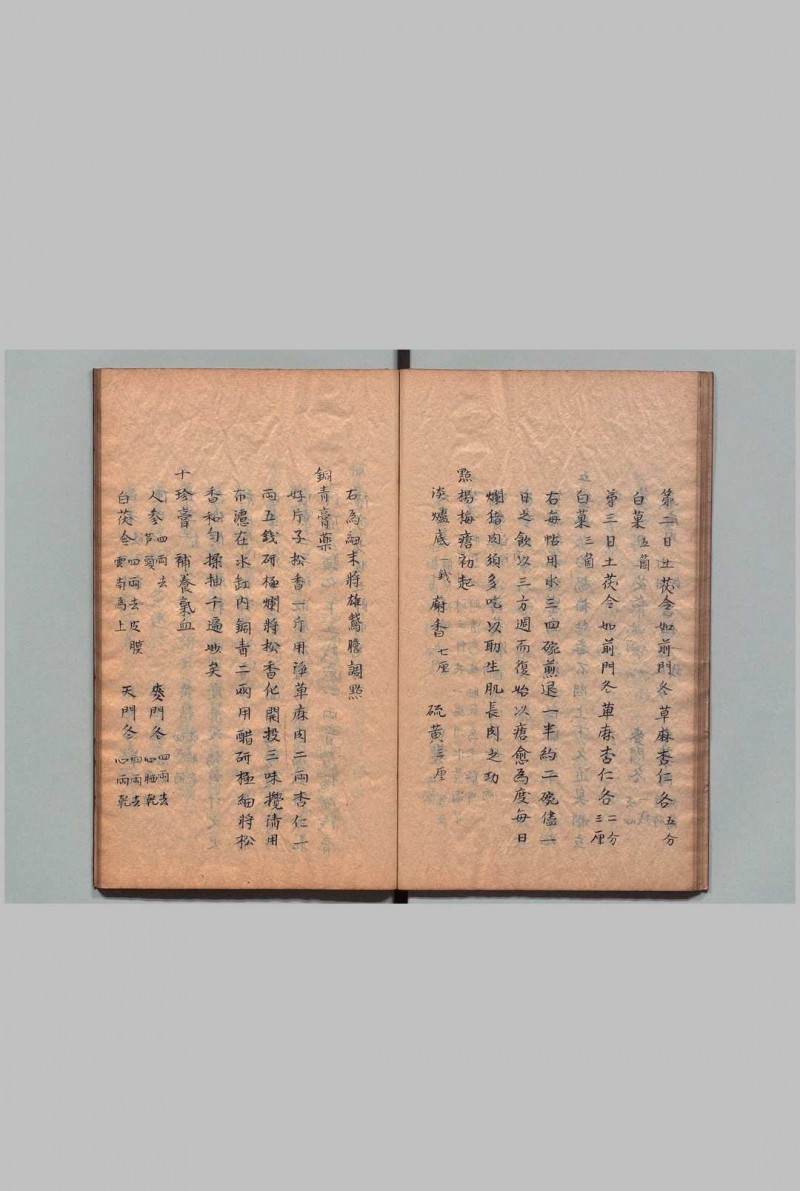 第二日土茯苓如前門冬草麻杏仁各五分
白菓五箇
第三日土茯苓如前門冬草麻杏仁各二分三厘
白菓三箇
右每帖用水三四碗煎退一半約二碗儘一
日之飲以三方週而復始以瘡愈為度每日
爛猪肉須多吃以助生肌長肉之功
點楊梅瘡初起
淡爐底一錢 麝香七厘 硫黃三厘
右為細末將雄鵞膽調點
銅青膏藥
好片子松香一斤用淨草麻肉二兩杏仁一
兩五錢研極爛將松香化開投三味攪清用
布濾在水缸內銅青二兩用醋研極細將松
香和勻揉抽千遍妙矣
十珍膏 補養氣血
人參四兩去芦頭 麥門冬四兩去心晒乾
白茯苓四兩去皮膜雲南為上 天門冬四兩去心晒乾